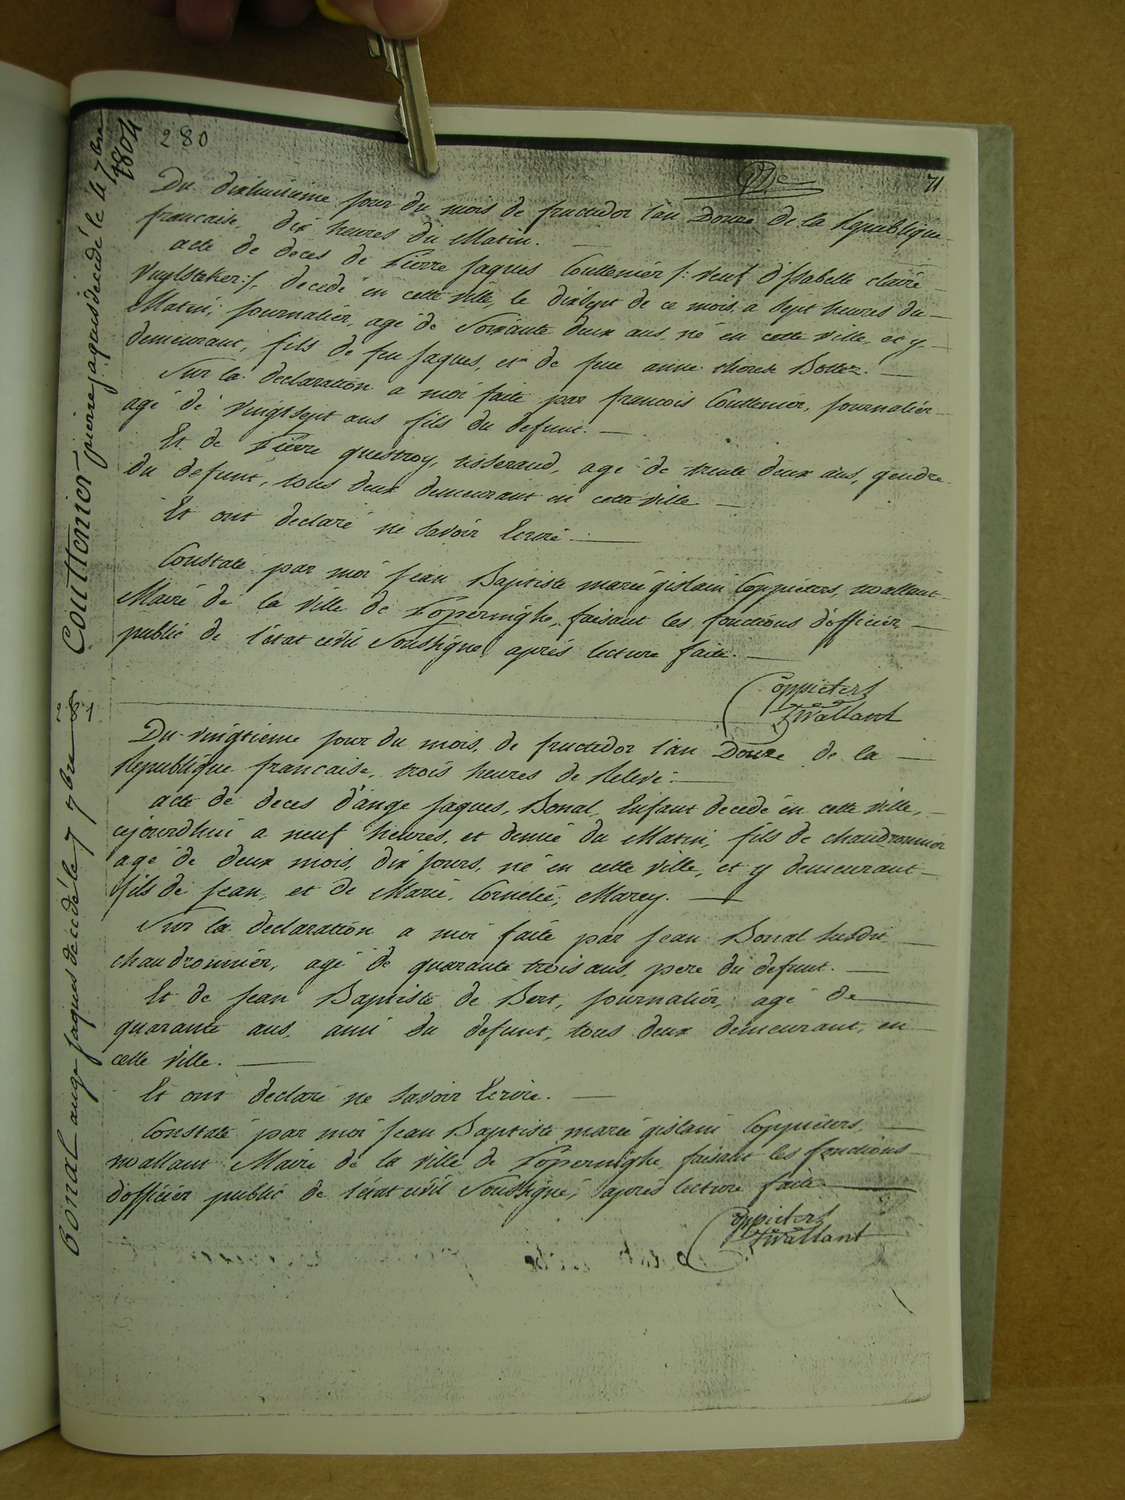 280
71
1804
Couttenier pierre jaques decédé le 4 7bre
Du dixhuitieme jour du mois de fructidor l'an Douze de la Republique
francaise, dix heures du Matin.
acte de deces de Pierre Jaques Couttenier /: veuf d'Isabelle claire
Vuylsteker :/, decedé en cette ville le dixsept de ce mois a sept heures du
Matin, journalier, agé de Soixante deux ans, né en cette ville, et y
demeurant, fils de feu Jaques, et de feue anne therese Bottez.
Sur la declaration a moi faite par francois Couttenier, journalier
agé de vingtsept ans fils du defunt.
Et de Pierre questroy, tisserand, agé de trente deux ans, gendre
du defunt, tous deux demeurant en cette ville
Et ont declaré ne savoir Ecrire
Constaté par moi Jean Baptiste marie gislain Coppieters, wallant
Maire de la Ville de Poperinghe, faisant les fonctions d'officier
public de l'état civil Soussigné, après lecture faite.
Coppieters
t'Wallant
281
Bonal ange jaques decédé le 7 7bre
Du vingtieme jour du mois de fructidor l'an Douze de la
Republique francaise, trois heures de Relevé.
acte de deces d'ange Jaques, Bonal, Enfant decedé en cette ville,
cejourdhui a neuf heures, et demie du Matin, fils de chaudronnier
agé de deux mois, dix jours, né en cette ville, et y demeurant
fils de Jean, et de Marie, Cornelie, Marey.
Sur la declaration a moi faite par Jean Bonal susdit
chaudronnier, agé de quarante trois ans, pere du defunt.
Et de Jean Baptiste de Bert, journalier, agé de
quarante ans, ami du defunt, tous deux demeurant, en
cette ville.
Et ont declaré ne savoir Ecrire.
Constaté par moi Jean Baptiste marie gislain Coppieters,
wallant Maire de la Ville de Poperinghe faisant les fonctions
d'officier public de l'état civil Soussigné, après lecture faite
Coppieters
t'Wallant